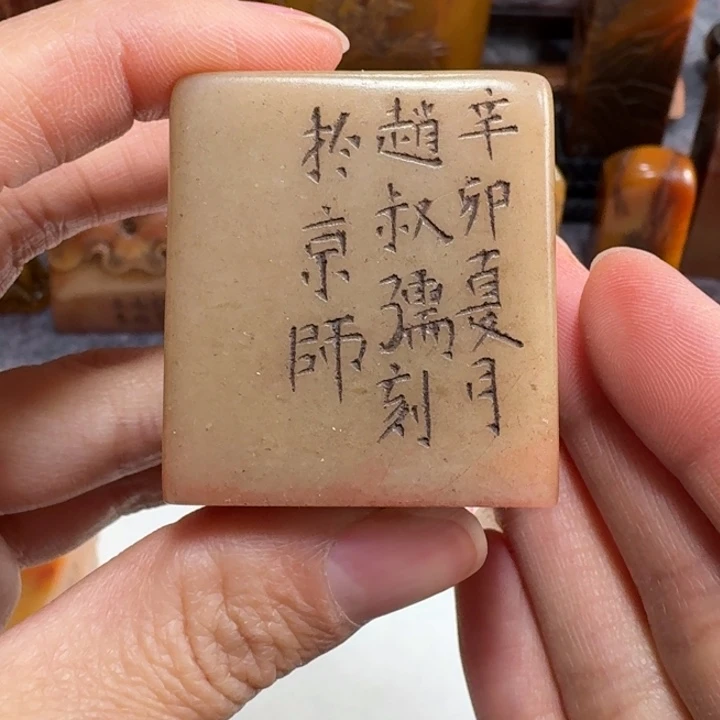 辛卯夏月
趙叔孺刻
於京師